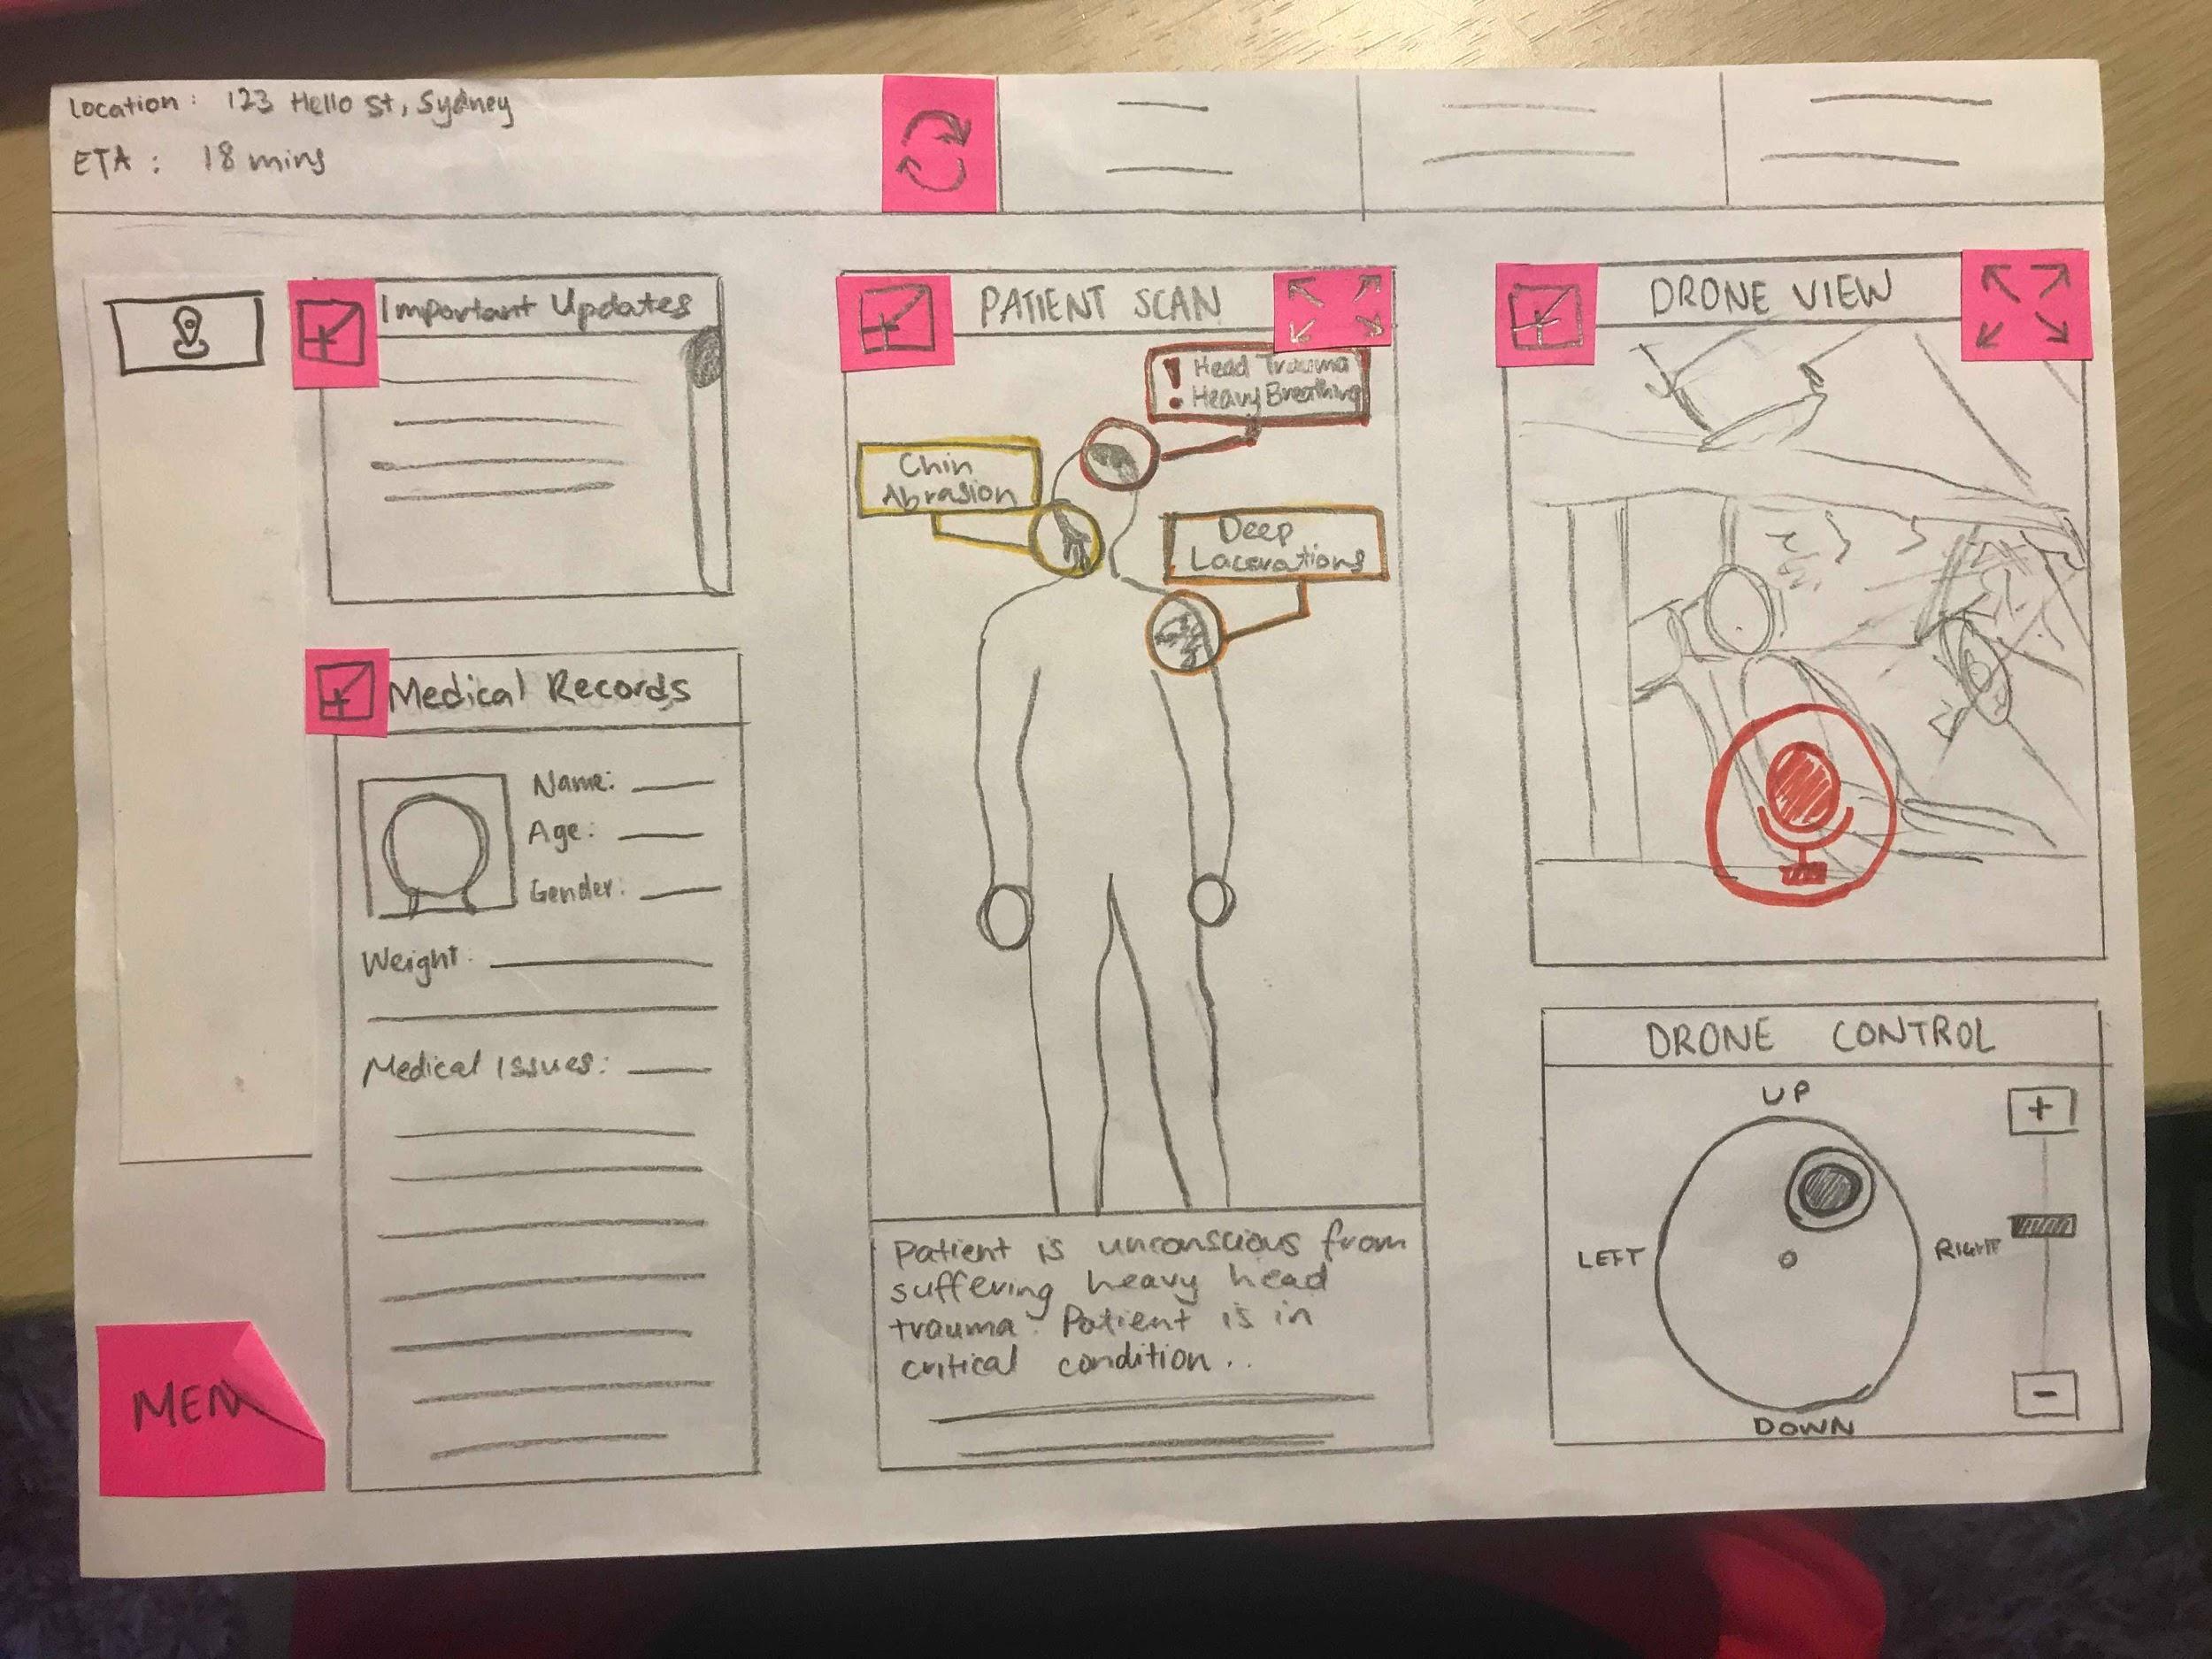 Location: 123 Hello St, Sydney
ETA: 18 mins
Important Updates
Medical Records
Name:
Age:
Gender:
Weight:
Medical Issues:
MEN
PATIENT SCAN
! Head Trauma
Heavy Breathing
Chin
Abrasion
Deep
Lacerations
Patient is unconscious from
suffering heavy head
trauma. Patient is in
critical condition..
DRONE VIEW
DRONE CONTROL
UP
+
LEFT
RIGHT
-
DOWN